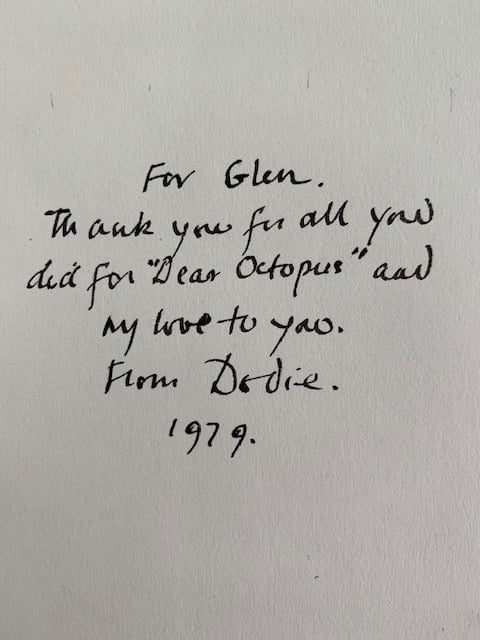 For Glen.
Thank you for all you
did for "Dear Octopus" and
my love to you.
From Dodie.
1979.